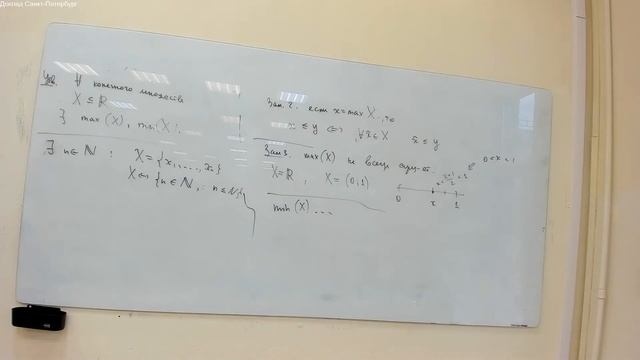 Доклад Санкт-Петербург
Утв. ∀ конечного множества
X ⊆ ℝ
∃ max(X), min(X).
∃ n ∈ ℕ : X = {x₁, ..., xₙ}
X ↔ {n ∈ ℕ, : n ≤ N}
Зам. 2. если x = max X, то
x ≤ y ⇔ ∀ x̃ ∈ X x̃ ≤ y
Зам 3. max(X) не всегда сущ-ет.
X = ℝ, X = (0,1)
0 < x < 1
0 x 1
min(X) ...